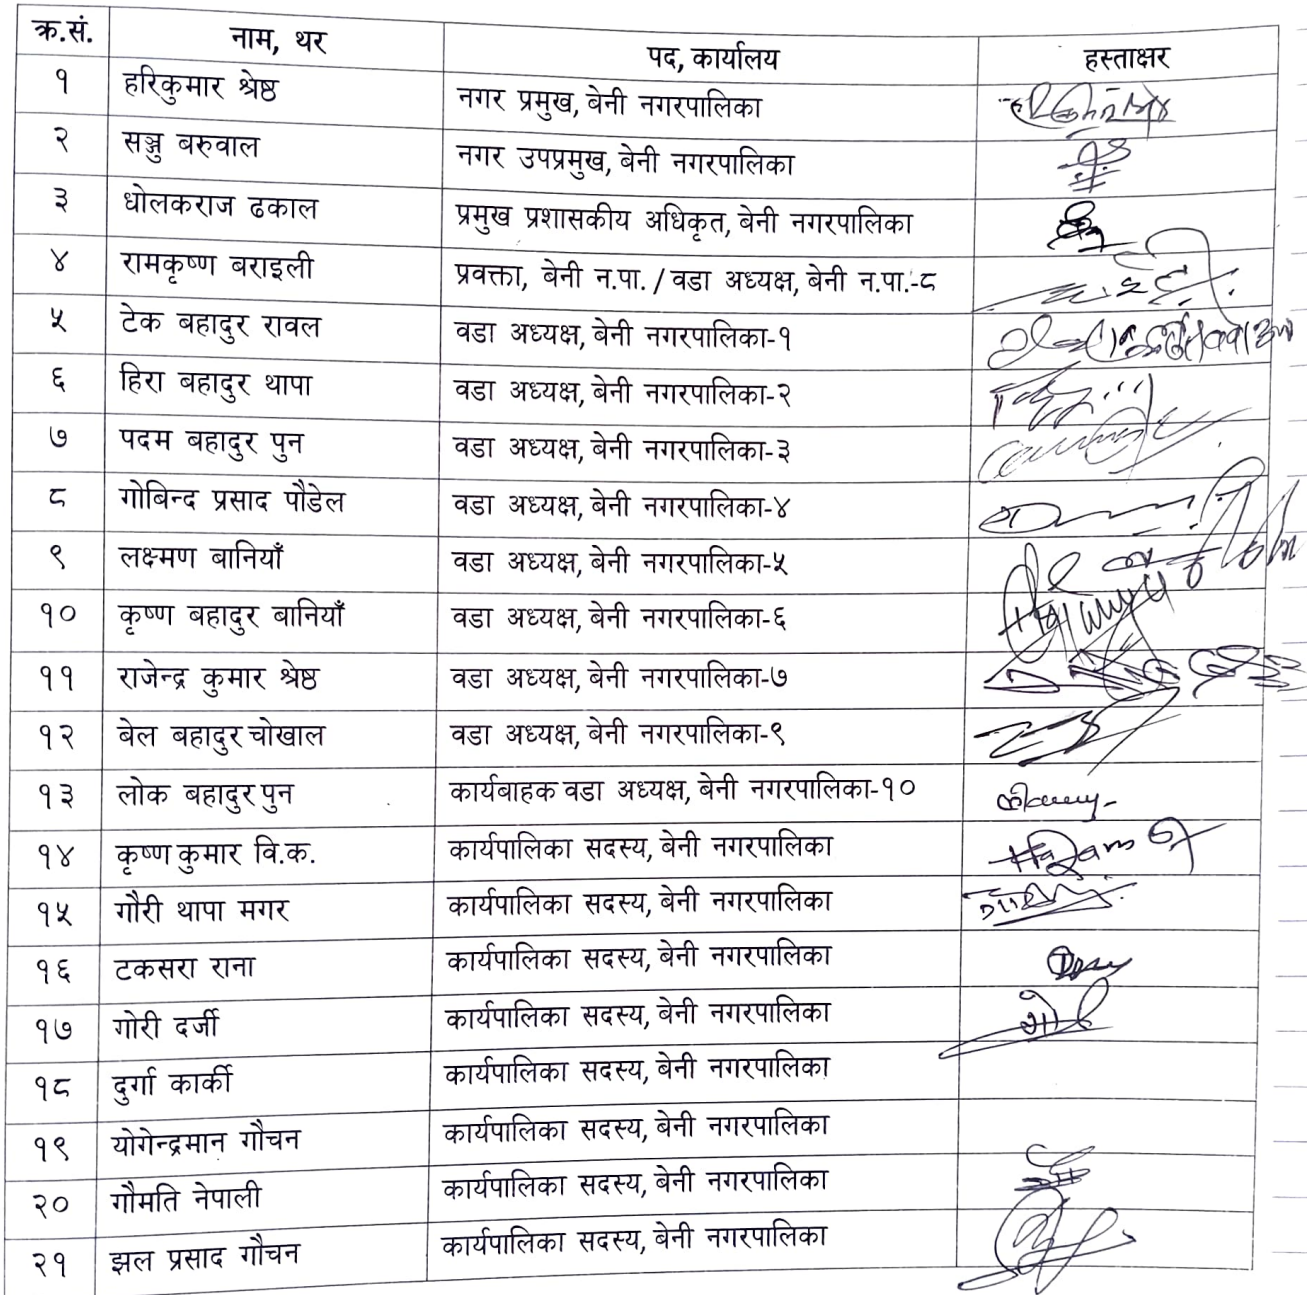 क्र.सं. नाम, थर पद, कार्यालय हस्ताक्षर
१ हरिकुमार श्रेष्ठ नगर प्रमुख, बेनी नगरपालिका
२ सञ्जु बरुवाल नगर उपप्रमुख, बेनी नगरपालिका
३ धोलकराज ढकाल प्रमुख प्रशासकीय अधिकृत, बेनी नगरपालिका
४ रामकृष्ण बराइली प्रवक्ता, बेनी न.पा. / वडा अध्यक्ष, बेनी न.पा.-८
५ टेक बहादुर रावल वडा अध्यक्ष, बेनी नगरपालिका-१
६ हिरा बहादुर थापा वडा अध्यक्ष, बेनी नगरपालिका-२
७ पदम बहादुर पुन वडा अध्यक्ष, बेनी नगरपालिका-३
८ गोबिन्द प्रसाद पौडेल वडा अध्यक्ष, बेनी नगरपालिका-४
९ लक्ष्मण बानियाँ वडा अध्यक्ष, बेनी नगरपालिका-५
१० कृष्ण बहादुर बानियाँ वडा अध्यक्ष, बेनी नगरपालिका-६
११ राजेन्द्र कुमार श्रेष्ठ वडा अध्यक्ष, बेनी नगरपालिका-७
१२ बेल बहादुर चोखाल वडा अध्यक्ष, बेनी नगरपालिका-९
१३ लोक बहादुर पुन कार्यबाहक वडा अध्यक्ष, बेनी नगरपालिका-१०
१४ कृष्ण कुमार वि.क. कार्यपालिका सदस्य, बेनी नगरपालिका
१५ गौरी थापा मगर कार्यपालिका सदस्य, बेनी नगरपालिका
१६ टकसरा राना कार्यपालिका सदस्य, बेनी नगरपालिका
१७ गोरी दर्जी कार्यपालिका सदस्य, बेनी नगरपालिका
१८ दुर्गा कार्की कार्यपालिका सदस्य, बेनी नगरपालिका
१९ योगेन्द्रमान गौचन कार्यपालिका सदस्य, बेनी नगरपालिका
२० गौमति नेपाली कार्यपालिका सदस्य, बेनी नगरपालिका
२१ झल प्रसाद गौचन कार्यपालिका सदस्य, बेनी नगरपालिका